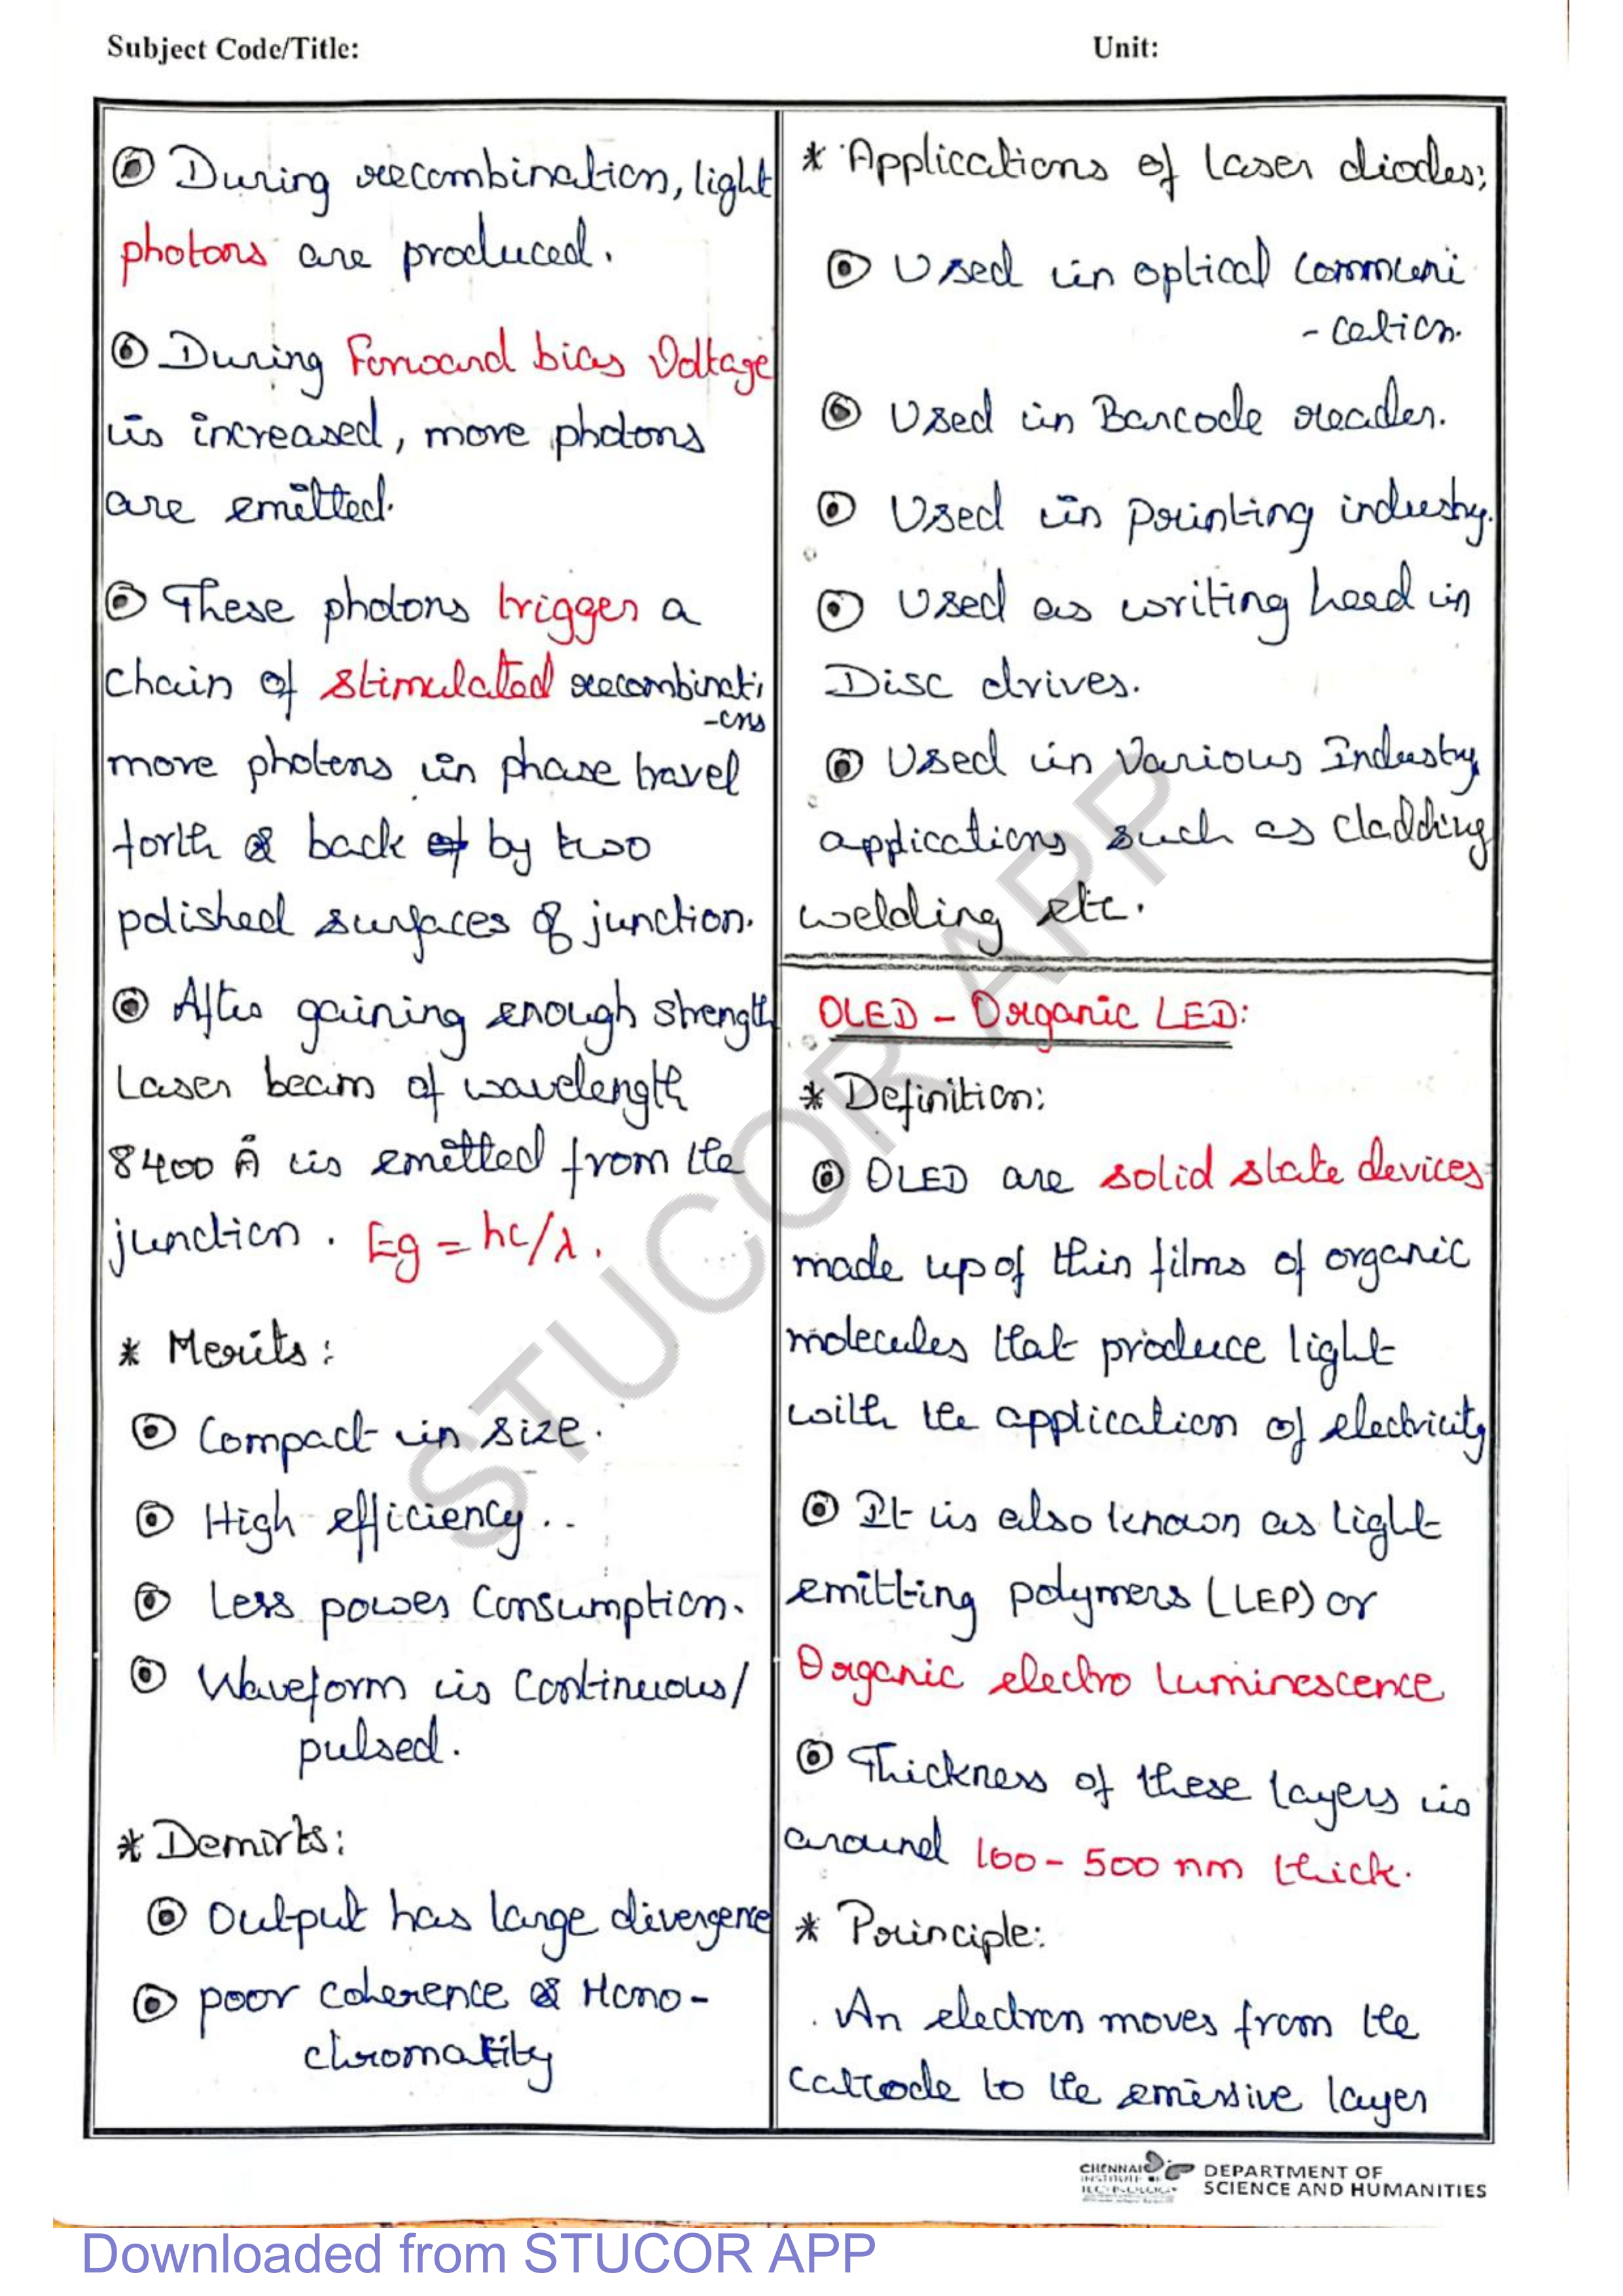 Subject Code/Title:
Unit:
During recombination, light
photons are produced.
During Forward bias Voltage
is increased, more photons
are emitted.
These photons trigger a
chain of stimulated recombinati
-ons
more photons in phase travel
forth & back of by two
polished surfaces of junction.
After gaining enough strength
Laser beam of wavelength
8400 Å is emitted from the
junction. Eg = hc/λ.
* Merits:
Compact in size.
High efficiency..
Less power Consumption.
Waveform is Continuous/
pulsed.
* Demirts:
Output has large divergence
poor coherence & Mono-
chromatity
* Applications of laser diodes;
Used in optical communi
- cation.
Used in Barcode reader.
Used in printing industry.
Used as writing head in
Disc drives.
Used in Various Industry
applications such as cladding
welding etc.
OLED - Organic LED:
* Definition:
OLED are solid state devices
made up of thin films of organic
molecules that produce light
with the application of electricity
It is also known as light
emitting polymers (LEP) or
Organic electro luminescence
Thickness of these layers is
around 100 - 500 nm thick.
* Principle:
. An electron moves from the
cathode to the emissive layer
STUCOR APP
CHENNAI
INSTITUTE OF
TECHNOLOGY
DEPARTMENT OF
SCIENCE AND HUMANITIES
Downloaded from STUCOR APP